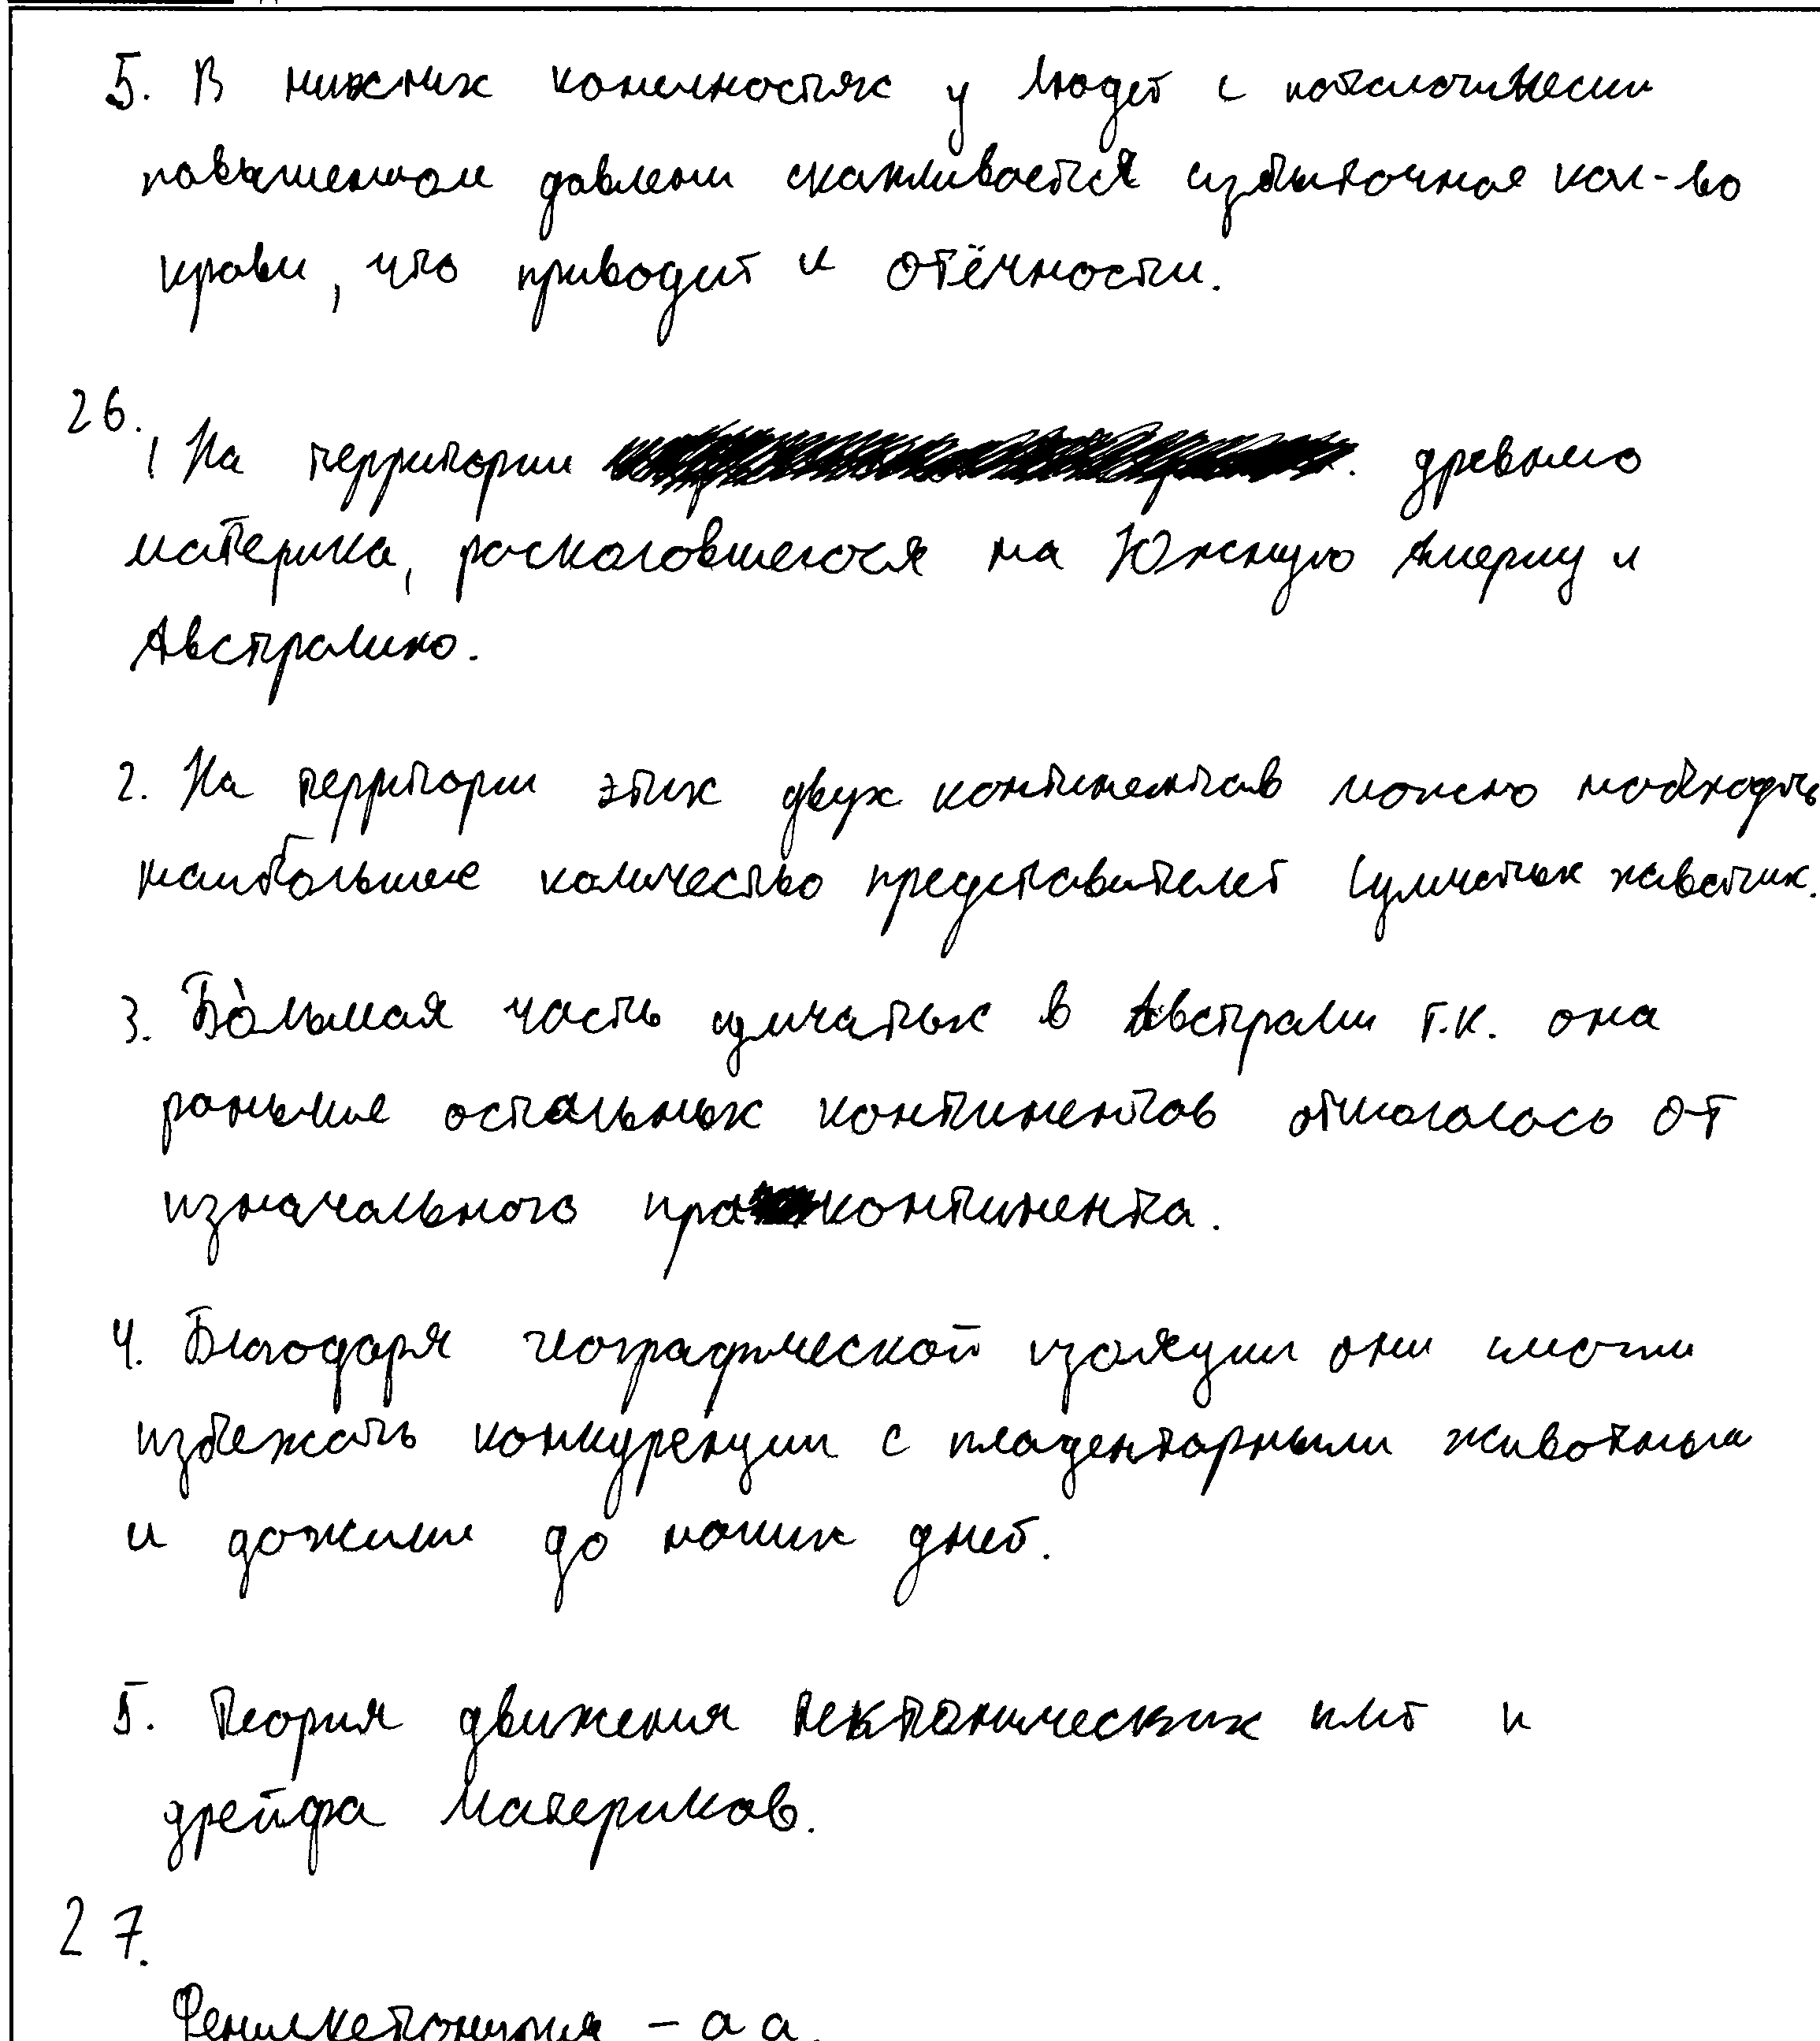 5. В нижних конечностях у людей с патологически
повышенном давлени скапливается избыточное кол-во
крови, что приводит к отёчности.
26.
1 На территории древнего
материка, расколовшегося на Южную Америку и
Австралию.
2. На территори этих двух континентов можно
наибольшее количество представителей сумчатых животных.
3. Бо̀льшая часть сумчатых в Австралии т.к. она
раньше остальных континентов откололась от
изначального праконтинента.
4. Благодаря географической изоляции они смогли
избежать конкуренции с плацентарными животными
и дожили до наших дней.
5. Теория движения тектонических плит и
дрейфа материков.
27.
Фенилкетонурия – аа.